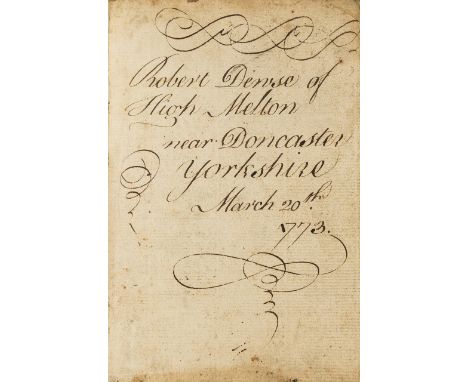 Robert Dewse of
High Melton
near Doncaster
Yorkshire
March 20th
1773.